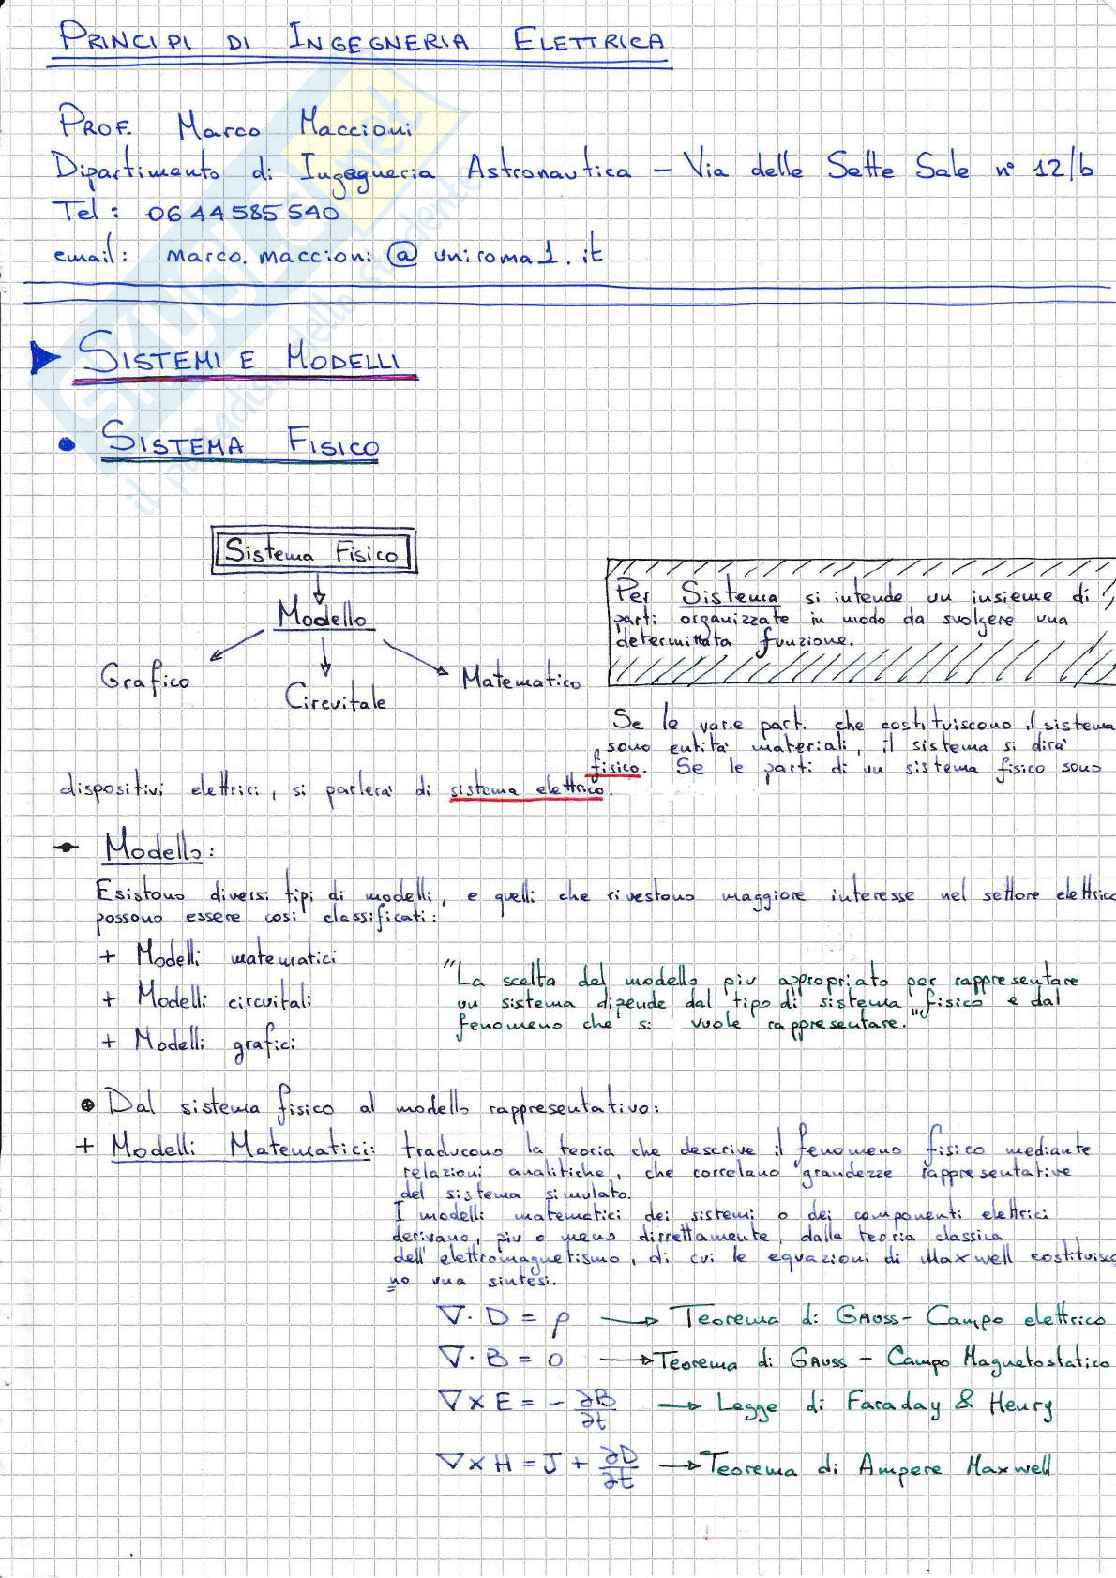 PRINCIPI DI INGEGNERIA ELETTRICA
PROF. Marco Maccioni
Dipartimento di Ingegneria Astronautica – Via delle Sette Sale n° 12/b
Tel: 06 44 585 540
email: marco.maccioni@uniroma1.it
SISTEMI E MODELLI
SISTEMA FISICO
Sistema Fisico
Modello
Grafico
Circuitale
Matematico
Per Sistema si intende un insieme di
parti organizzate in modo da svolgere una
determinata funzione.
Se le varie parti che costituiscono il sistema
sono entità materiali, il sistema si dirà
fisico. Se le parti di un sistema fisico sono
dispositivi elettrici, si parlerà di sistema elettrico.
Modello:
Esistono diversi tipi di modelli, e quelli che rivestono maggiore interesse nel settore elettrico
possono essere così classificati:
+ Modelli matematici
+ Modelli circuitali
+ Modelli grafici
"La scelta del modello più appropriato per rappresentare
un sistema dipende dal tipo di sistema fisico e dal
fenomeno che si vuole rappresentare."
Dal sistema fisico al modello rappresentativo:
+ Modelli Matematici: traducono la teoria che descrive il fenomeno fisico mediante
relazioni analitiche, che correlano grandezze rappresentative
del sistema simulato.
I modelli matematici dei sistemi o dei componenti elettrici
derivano, più o meno direttamente, dalla teoria classica
dell'elettromagnetismo, di cui le equazioni di Maxwell costituisco
no una sintesi.
∇·D = ρ → Teorema di GAUSS – Campo elettrico
∇·B = 0 → Teorema di GAUSS – Campo Magnetostatico
∇×E = -∂B/∂t → Legge di Faraday & Henry
∇×H = J + ∂D/∂t → Teorema di Ampere Maxwell